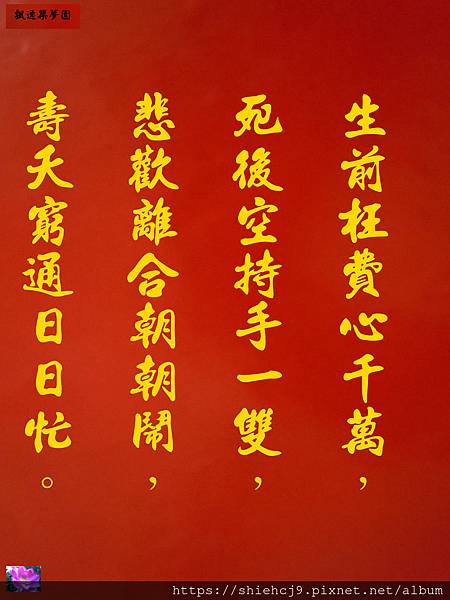 飄逸築夢園
生前枉費心千萬，
死後空持手一雙，
悲歡離合朝朝鬧，
壽夭窮通日日忙。
https://shiehcj9.pixnet.net/album